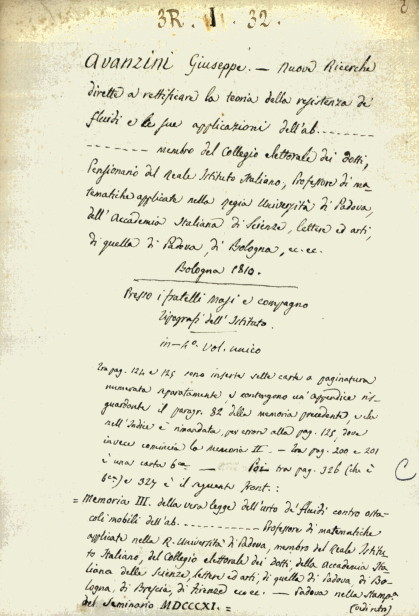 3R. I. 32.
Avanzini Giuseppe. — Nuove Ricerche
dirette a rettificare la teoria della resistenza de'
fluidi e le sue applicazioni dell'ab. --------
-------- membro del Collegio elettorale dei dotti,
Pensionario del Reale Istituto Italiano, Professore di ma-
tematiche applicate nella Regia Università di Padova,
dell'Accademia Italiana di Scienze, lettere ed arti,
di quella di Padova, di Bologna, ec. ec.
Bologna 1810.
Presso i fratelli Masi e compagno
Tipografi dell'Istituto.
in-4º. vol. unico
Tra pag. 124 e 125 sono inserte sette carte a paginatura
numerata separatamente, e contengono un'appendice ris-
guardante il paragr. 82 della memoria precedente, e
nell'Indice è rimandata, per errore alla pag. 125, dove
invece comincia la memoria II — Tra pag. 200 e 201
è una carta — Poi tra pag. 326 (che è
) e 327 è il seguente front.:
= Memoria III. della vera legge dell'urto de' fluidi contro osta-
coli mobili dell'ab. -------- Professore di matematiche
applicate nella R. Università di Padova, membro del Reale Istitu-
to Italiano, del Collegio elettorale dei dotti, della Accademia Ita-
liana delle Scienze, lettere ed arti, di quella di Padova, di Bo-
logna, di Brescia, di Firenze ec. ec. — Padova nella Stamp.ª
del Seminario MDCCCXI. =
C